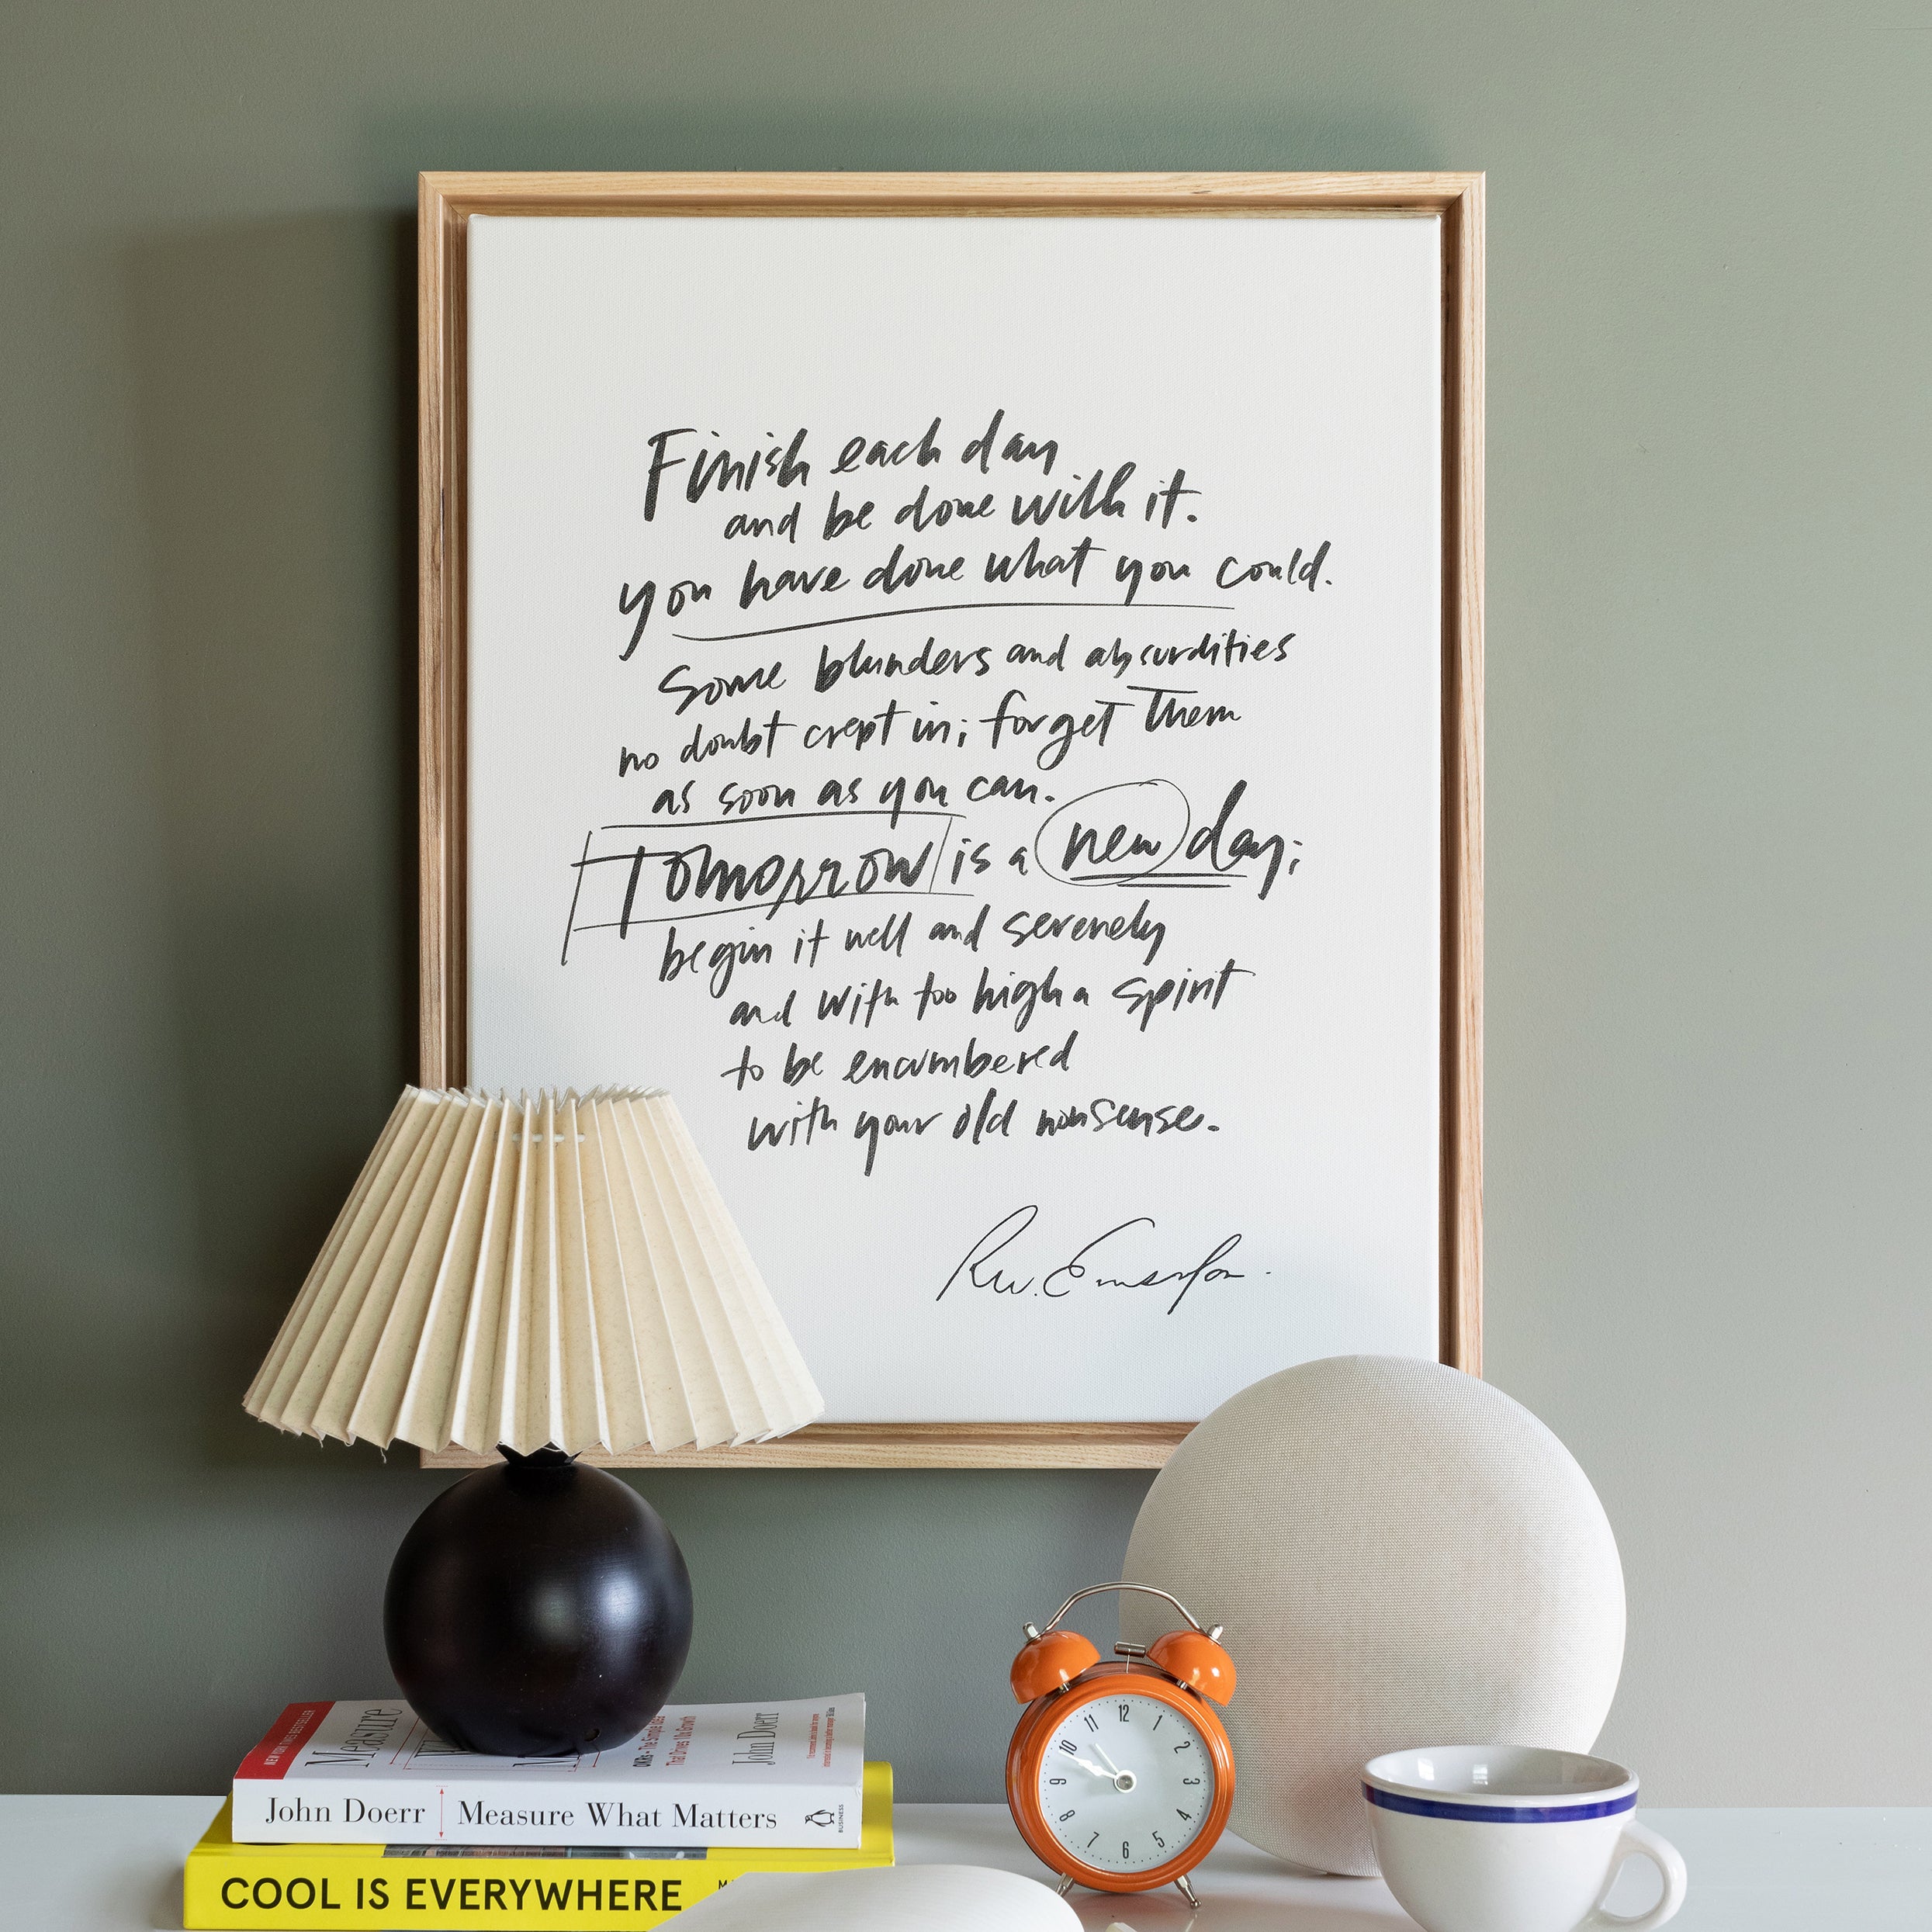 Finish each day
and be done with it.
you have done what you could.
Some blunders and absurdities
no doubt crept in; forget them
as soon as you can.
Tomorrow is a new day;
begin it well and serenely
and with too high a spirit
to be encumbered
with your old nonsense.
Rw. Emerson.
NEW YORK TIMES BESTSELLER
Measure
OKRs • The Simple Idea
That Drives 10x Growth
John Doerr
John Doerr
Measure What Matters
BUSINESS
COOL IS EVERYWHERE
12
1
2
3
4
5
6
7
8
9
10
11